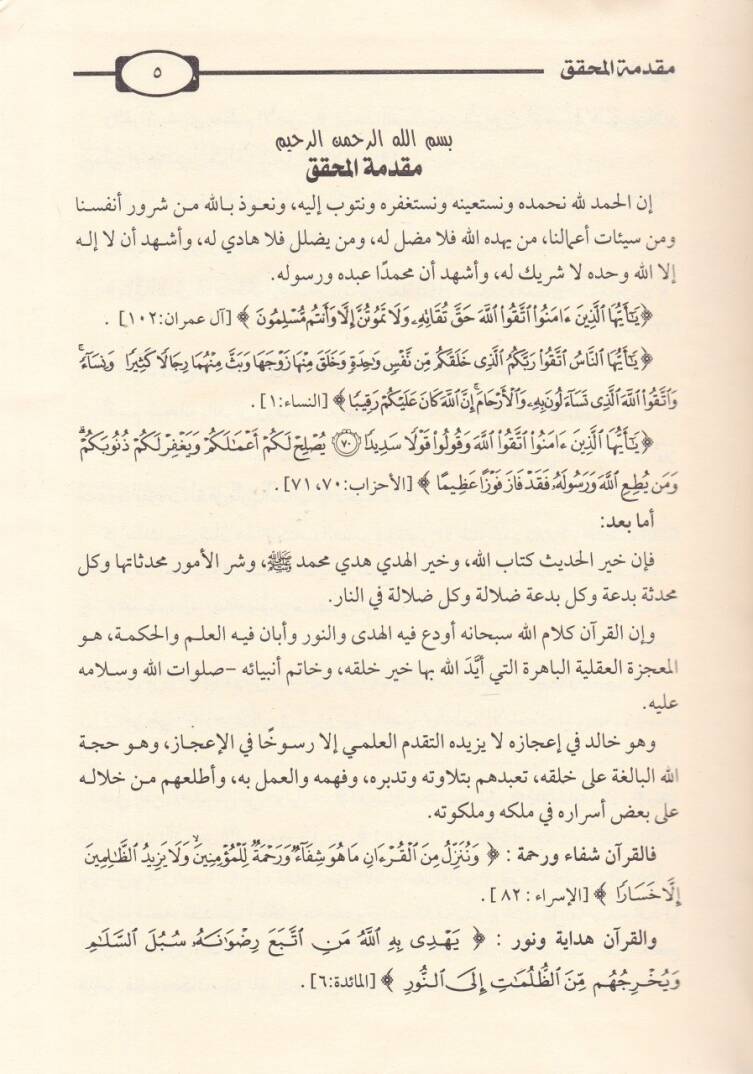 مقدمة المحقق ٥
بسم الله الرحمن الرحيم
مقدمة المحقق
إن الحمد لله نحمده ونستعينه ونستغفره ونتوب إليه، ونعوذ بالله من شرور أنفسنا
ومن سيئات أعمالنا، من يهده الله فلا مضل له، ومن يضلل فلا هادي له، وأشهد أن لا إله
إلا الله وحده لا شريك له، وأشهد أن محمدًا عبده ورسوله.
﴿يَٰٓأَيُّهَا ٱلَّذِينَ ءَامَنُوا۟ ٱتَّقُوا۟ ٱللَّهَ حَقَّ تُقَاتِهِۦ وَلَا تَمُوتُنَّ إِلَّا وَأَنتُم مُّسْلِمُونَ﴾ [آل عمران:١٠٢].
﴿يَٰٓأَيُّهَا ٱلنَّاسُ ٱتَّقُوا۟ رَبَّكُمُ ٱلَّذِى خَلَقَكُم مِّن نَّفْسٍ وَٰحِدَةٍ وَخَلَقَ مِنْهَا زَوْجَهَا وَبَثَّ مِنْهُمَا رِجَالًا كَثِيرًا وَنِسَآءً ۚ
وَٱتَّقُوا۟ ٱللَّهَ ٱلَّذِى تَسَآءَلُونَ بِهِۦ وَٱلْأَرْحَامَ ۚ إِنَّ ٱللَّهَ كَانَ عَلَيْكُمْ رَقِيبًا﴾ [النساء:١].
﴿يَٰٓأَيُّهَا ٱلَّذِينَ ءَامَنُوا۟ ٱتَّقُوا۟ ٱللَّهَ وَقُولُوا۟ قَوْلًا سَدِيدًا ٧٠ يُصْلِحْ لَكُمْ أَعْمَٰلَكُمْ وَيَغْفِرْ لَكُمْ ذُنُوبَكُمْ ۗ
وَمَن يُطِعِ ٱللَّهَ وَرَسُولَهُۥ فَقَدْ فَازَ فَوْزًا عَظِيمًا﴾ [الأحزاب:٧٠، ٧١].
أما بعد:
فإن خير الحديث كتاب الله، وخير الهدي هدي محمد ﷺ، وشر الأمور محدثاتها وكل
محدثة بدعة وكل بدعة ضلالة وكل ضلالة في النار.
وإن القرآن كلام الله سبحانه أودع فيه الهدى والنور وأبان فيه العلم والحكمة، هو
المعجزة العقلية الباهرة التي أيَّدَ الله بها خير خلقه، وخاتم أنبيائه -صلوات الله وسلامه
عليه.
وهو خالد في إعجازه لا يزيده التقدم العلمي إلا رسوخًا في الإعجاز، وهو حجة
الله البالغة على خلقه، تعبدهم بتلاوته وتدبره، وفهمه والعمل به، وأطلعهم من خلاله
على بعض أسراره في ملكه وملكوته.
فالقرآن شفاء ورحمة: ﴿وَنُنَزِّلُ مِنَ ٱلْقُرْءَانِ مَا هُوَ شِفَآءٌ وَرَحْمَةٌ لِّلْمُؤْمِنِينَ ۙ وَلَا يَزِيدُ ٱلظَّٰلِمِينَ
إِلَّا خَسَارًا﴾ [الإسراء: ٨٢].
والقرآن هداية ونور: ﴿يَهْدِى بِهِ ٱللَّهُ مَنِ ٱتَّبَعَ رِضْوَٰنَهُۥ سُبُلَ ٱلسَّلَٰمِ
وَيُخْرِجُهُم مِّنَ ٱلظُّلُمَٰتِ إِلَى ٱلنُّورِ﴾ [المائدة:٦].